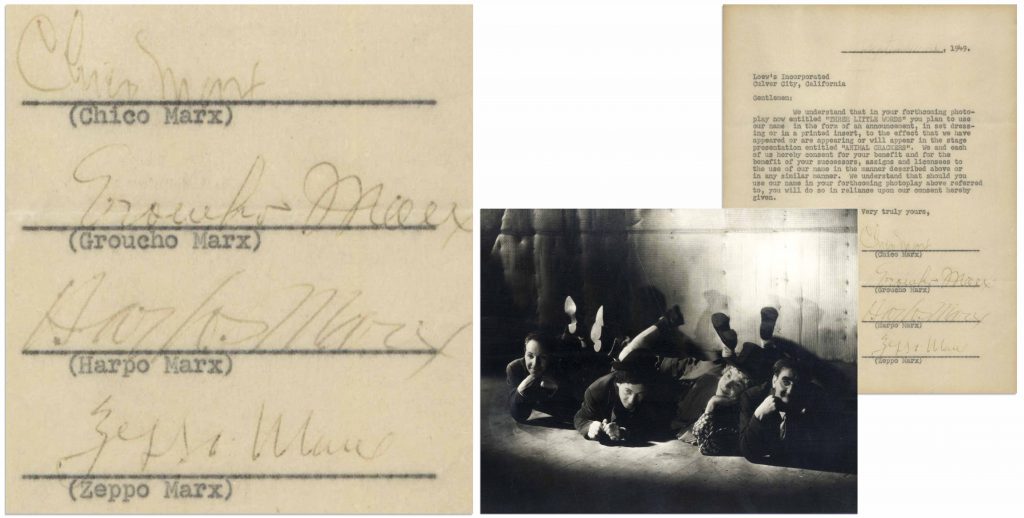 Chico Marx
(Chico Marx)
Groucho Marx
(Groucho Marx)
Harpo Marx
(Harpo Marx)
Zeppo Marx
(Zeppo Marx)
, 1949.
Loew's Incorporated
Culver City, California
Gentlemen:
We understand that in your forthcoming photo-
play now entitled "THREE LITTLE WORDS" you plan to use
our name in the form of an announcement, in set dress-
ing or in a printed insert, to the effect that we have
appeared or are appearing or will appear in the stage
presentation entitled "ANIMAL CRACKERS". We and each
of us hereby consent for your benefit and for the
benefit of your successors, assigns and licensees to
the use of our name in the manner described above or
in any similar manner. We understand that should you
use our name in your forthcoming photoplay above referred
to, you will do so in reliance upon our consent hereby
given.
Very truly yours,
Chico Marx
(Chico Marx)
Groucho Marx
(Groucho Marx)
Harpo Marx
(Harpo Marx)
Zeppo Marx
(Zeppo Marx)